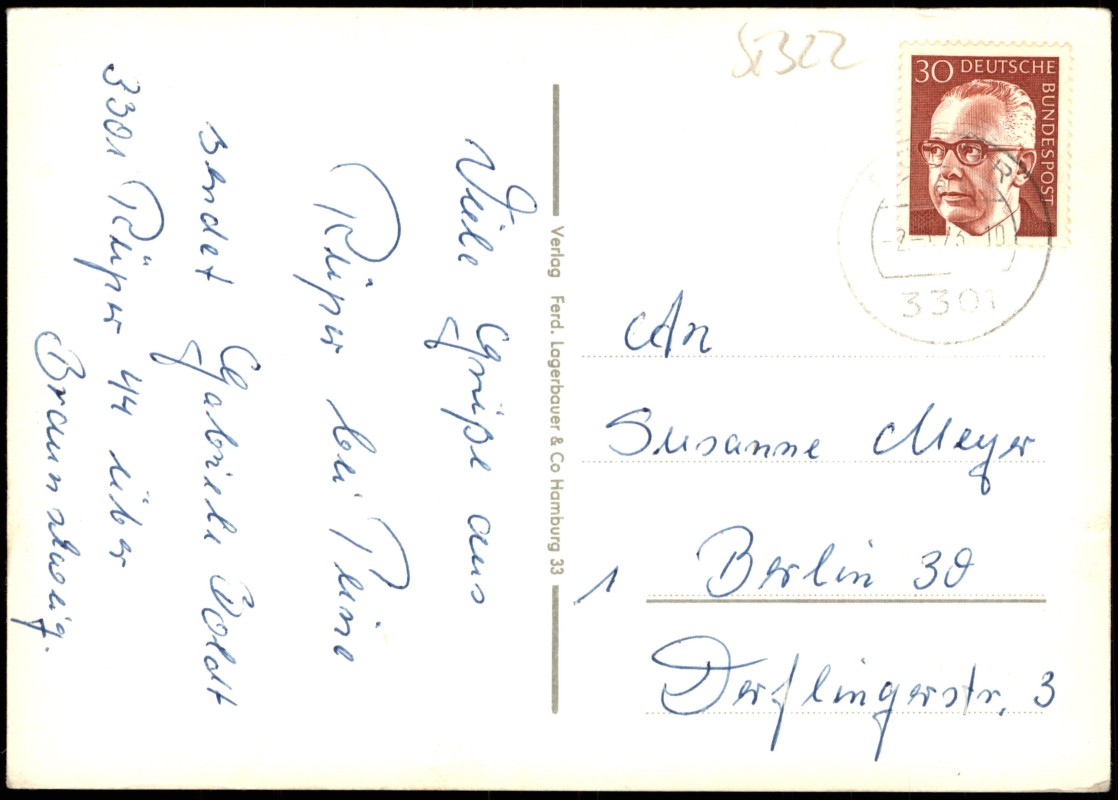 Viele Grüße aus
Rüper bei Peine
sendet Gabriele Boldt
3301 Rüper 44 über
Braunschweig.
Verlag Ferd. Lagerbauer & Co Hamburg 33
30 DEUTSCHE
BUNDESPOST
3301
An
Susanne Meyer
1 Berlin 30
Derflingerstr. 3